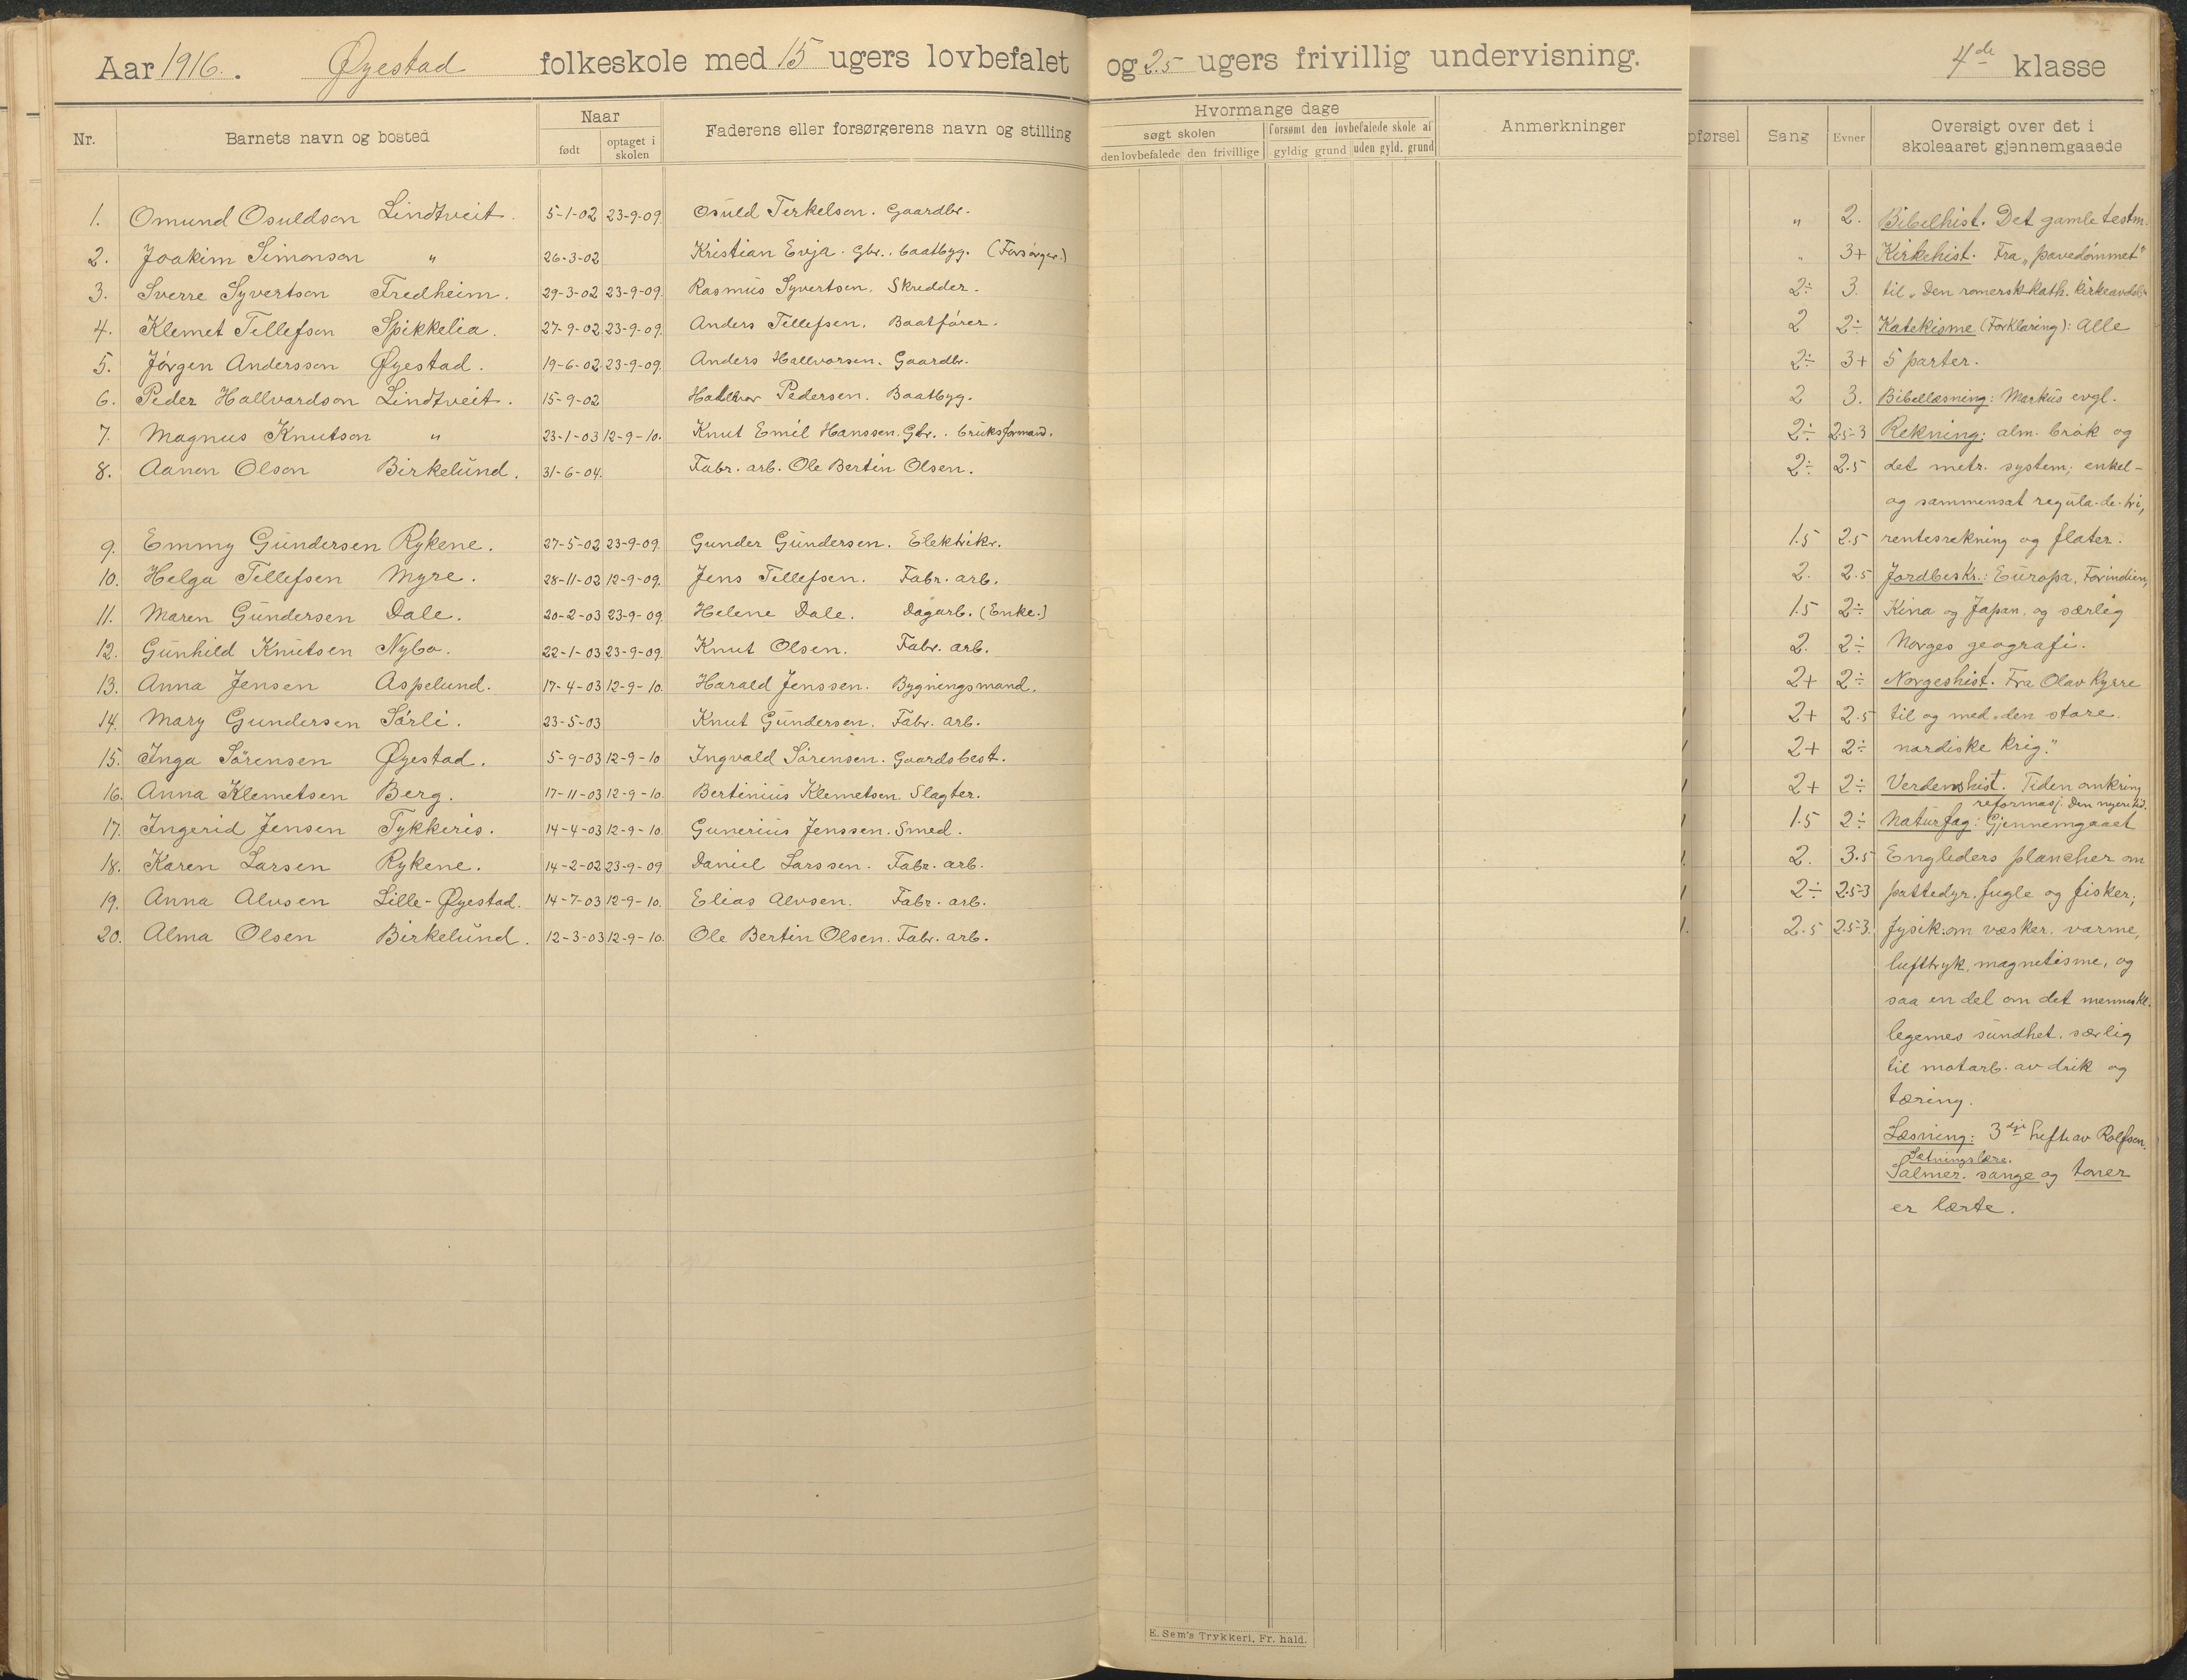 Aar 1916. Øyestad folkeskole med 15 ugers lovbefalet og 2.5 ugers frivillig undervisning. 4de klasse
Nr. Barnets navn og bosted Naar født optaget i skolen Faderens eller forsørgerens navn og stilling
Hvormange dage søgt skolen den lovbefalede den frivillige forsømt den lovbefalede skole af gyldig grund uden gyld. grund Anmerkninger
pførsel Sang Evner Oversigt over det i skoleaaret gjennemgaaede
1. Omund Osuldson Lindtveit. 5-1-02 23-9-09 Osuld Terkelson. Gaardbr. " 2. Bibelhist. Det gamle testm.
2. Joakim Simonson " 26-3-02 Kristian Evja. Gbr.. baatbyg. (Forsørger.) " 3+ Kirkehist. Fra "pavedømmet"
3. Sverre Syvertson Fredheim. 29-3-02 23-9-09. Rasmus Syvertsen. Skredder. 2÷ 3. til "Den romersk-kath. kirkeavdel."
4. Klemet Tellefson Spikkelia. 27-9-02 23-9-09. Anders Tellefsen. Baatfører. 2 2÷ Katekisme (Forklaring): Alle
5. Jörgen Andersson Øyestad. 19-6-02 23-9-09. Anders Hallvorsen. Gaardbr. 2÷ 3+ 5 parter.
6. Peder Hallvardson Lindtveit. 15-9-02 Hallvor Pedersen. Baatbyg. 2 3. Bibellæsning: Markus evgl.
7. Magnus Knutson " 23-1-03 12-9-10. Knut Emil Hanssen. Gbr.. bruksformand. 2÷ 2.5-3 Rekning: alm. brøk og
8. Aanon Olson Birkelund. 31-6-04. Fabr. arb. Ole Bertin Olsen. 2÷ 2.5 det metr. system; enkel-
og sammensat regula-de-tri,
9. Emmy Gundersen Rykene. 27-5-02 23-9-09. Gunder Gundersen. Elektrikr. 1.5 2.5 rentesrekning og flater.
10. Helga Tellefsen Myre. 28-11-02 12-9-09. Jens Tellefsen. Fabr. arb. 2. 2.5 Jordbeskr.: Europa, Forindien,
11. Maren Gundersen Dale. 20-2-03 23-9-09 Helene Dale. Dagarb. (Enke.) 1.5 2÷ Kina og Japan, og særlig
12. Gunhild Knutsen Nybo. 22-1-03 23-9-09 Knut Olsen. Fabr. arb. 2. 2÷ Norges geografi.
13. Anna Jensen Aspelund. 17-4-03 12-9-10. Harald Jenssen. Bygningsmand. 2+ 2÷ Norgeshist. Fra Olav Kyrre
14. Mary Gundersen Sörli. 23-5-03 Knut Gundersen. Fabr. arb. 2+ 2.5 til og med "den store
15. Inga Sörensen Øyestad. 5-9-03 12-9-10 Ingvald Sörensen. Gaardsbest. 2+ 2÷ nordiske krig."
16. Anna Klemetsen Berg. 17-11-03 12-9-10. Bertinius Klemetsen. Slagter. 2+ 2÷ Verdenshist. Tiden omkring
reformasj. Den nyere tid.
17. Ingerid Jensen Tykkeris. 14-4-03 12-9-10. Gunerius Jenssen. Smed. 1.5 2÷ Naturfag: Gjennemgaaet
18. Karen Larsen Rykene. 14-2-02 23-9-09 Daniel Larssen. Fabr. arb. 2. 3.5 Engleders plancher om
19. Anna Alvsen Lille-Øyestad. 14-7-03 12-9-10. Elias Alvsen. Fabr. arb. 2÷ 2.5-3 pattedyr, fugle og fisker;
20. Alma Olsen Birkelund. 12-3-03 12-9-10. Ole Bertin Olsen. Fabr. arb. 2.5 2.5-3. fysik: om væsker, varme,
lufttryk, magnetisme, og
saa en del om det menneskl.
legemes sundhet, særlig
til motarb. av drik og
tæring.
Læsning: 3dje hefte av Rolfsen.
Sætningslære.
Salmer, sange og toner
er lærte.
E. Sem's Trykkeri, Fr. hald.